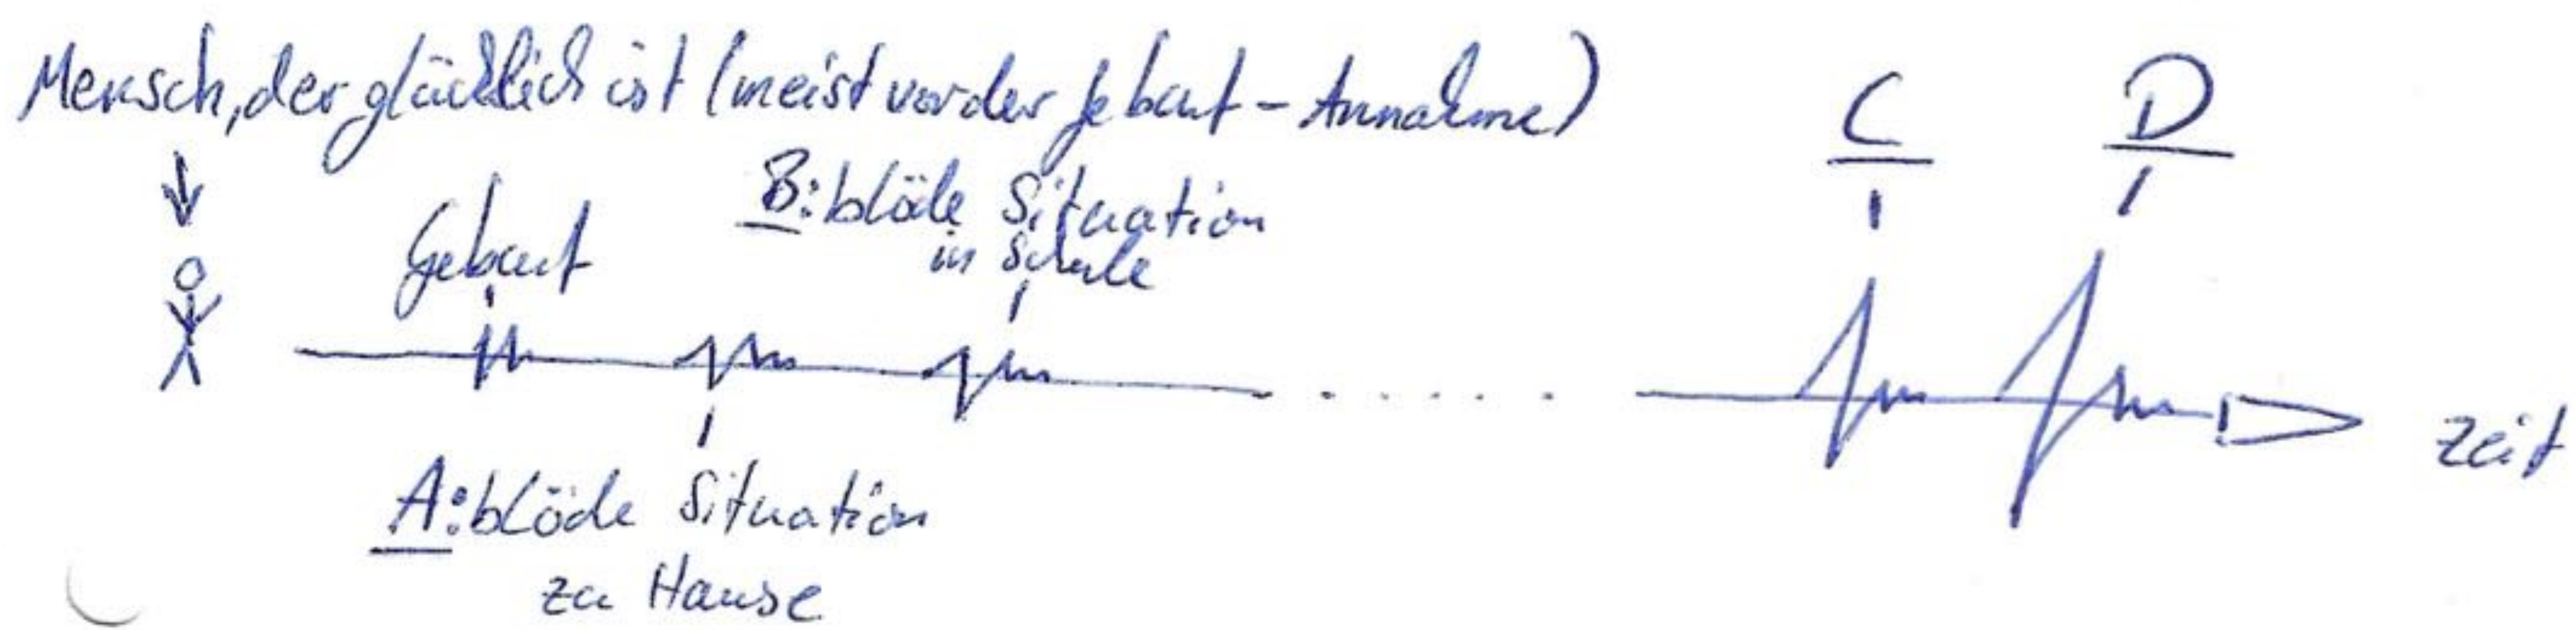 Mensch, der glücklich ist (meist vor der Geburt - Annahme)
C
D
B: blöde Situation
in Schule
Geburt
Zeit
A: blöde Situation
zu Hause